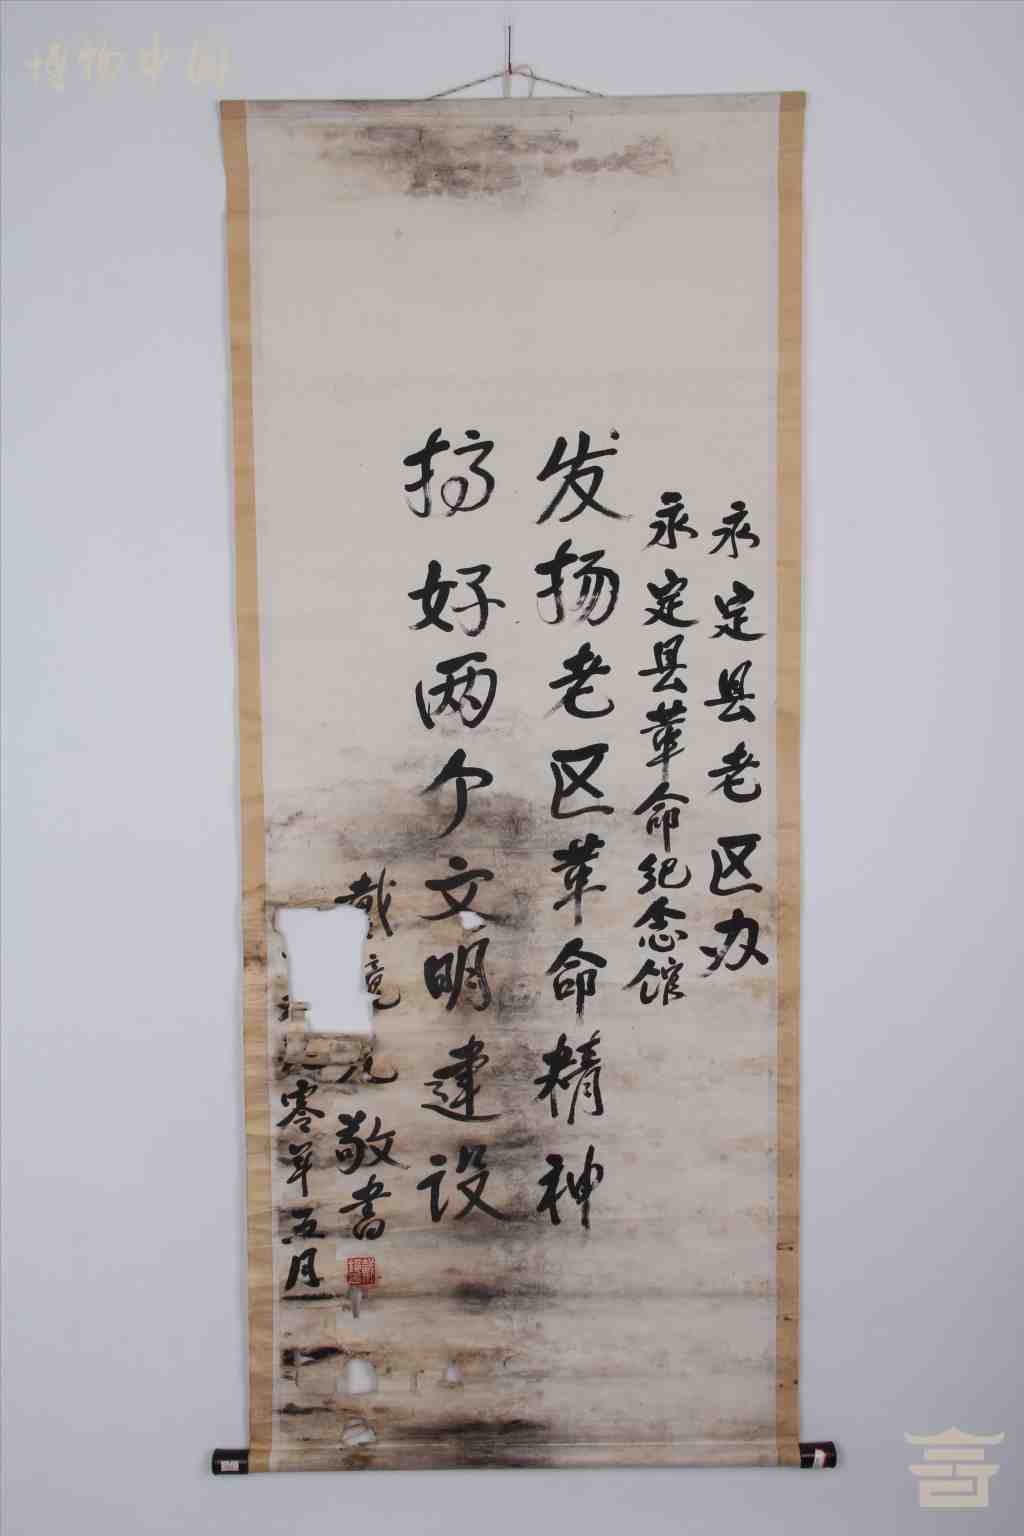 永定县老区办
永定县革命纪念馆
发扬老区革命精神
搞好两个文明建设
戴镜元敬书
零年五月
博物中国